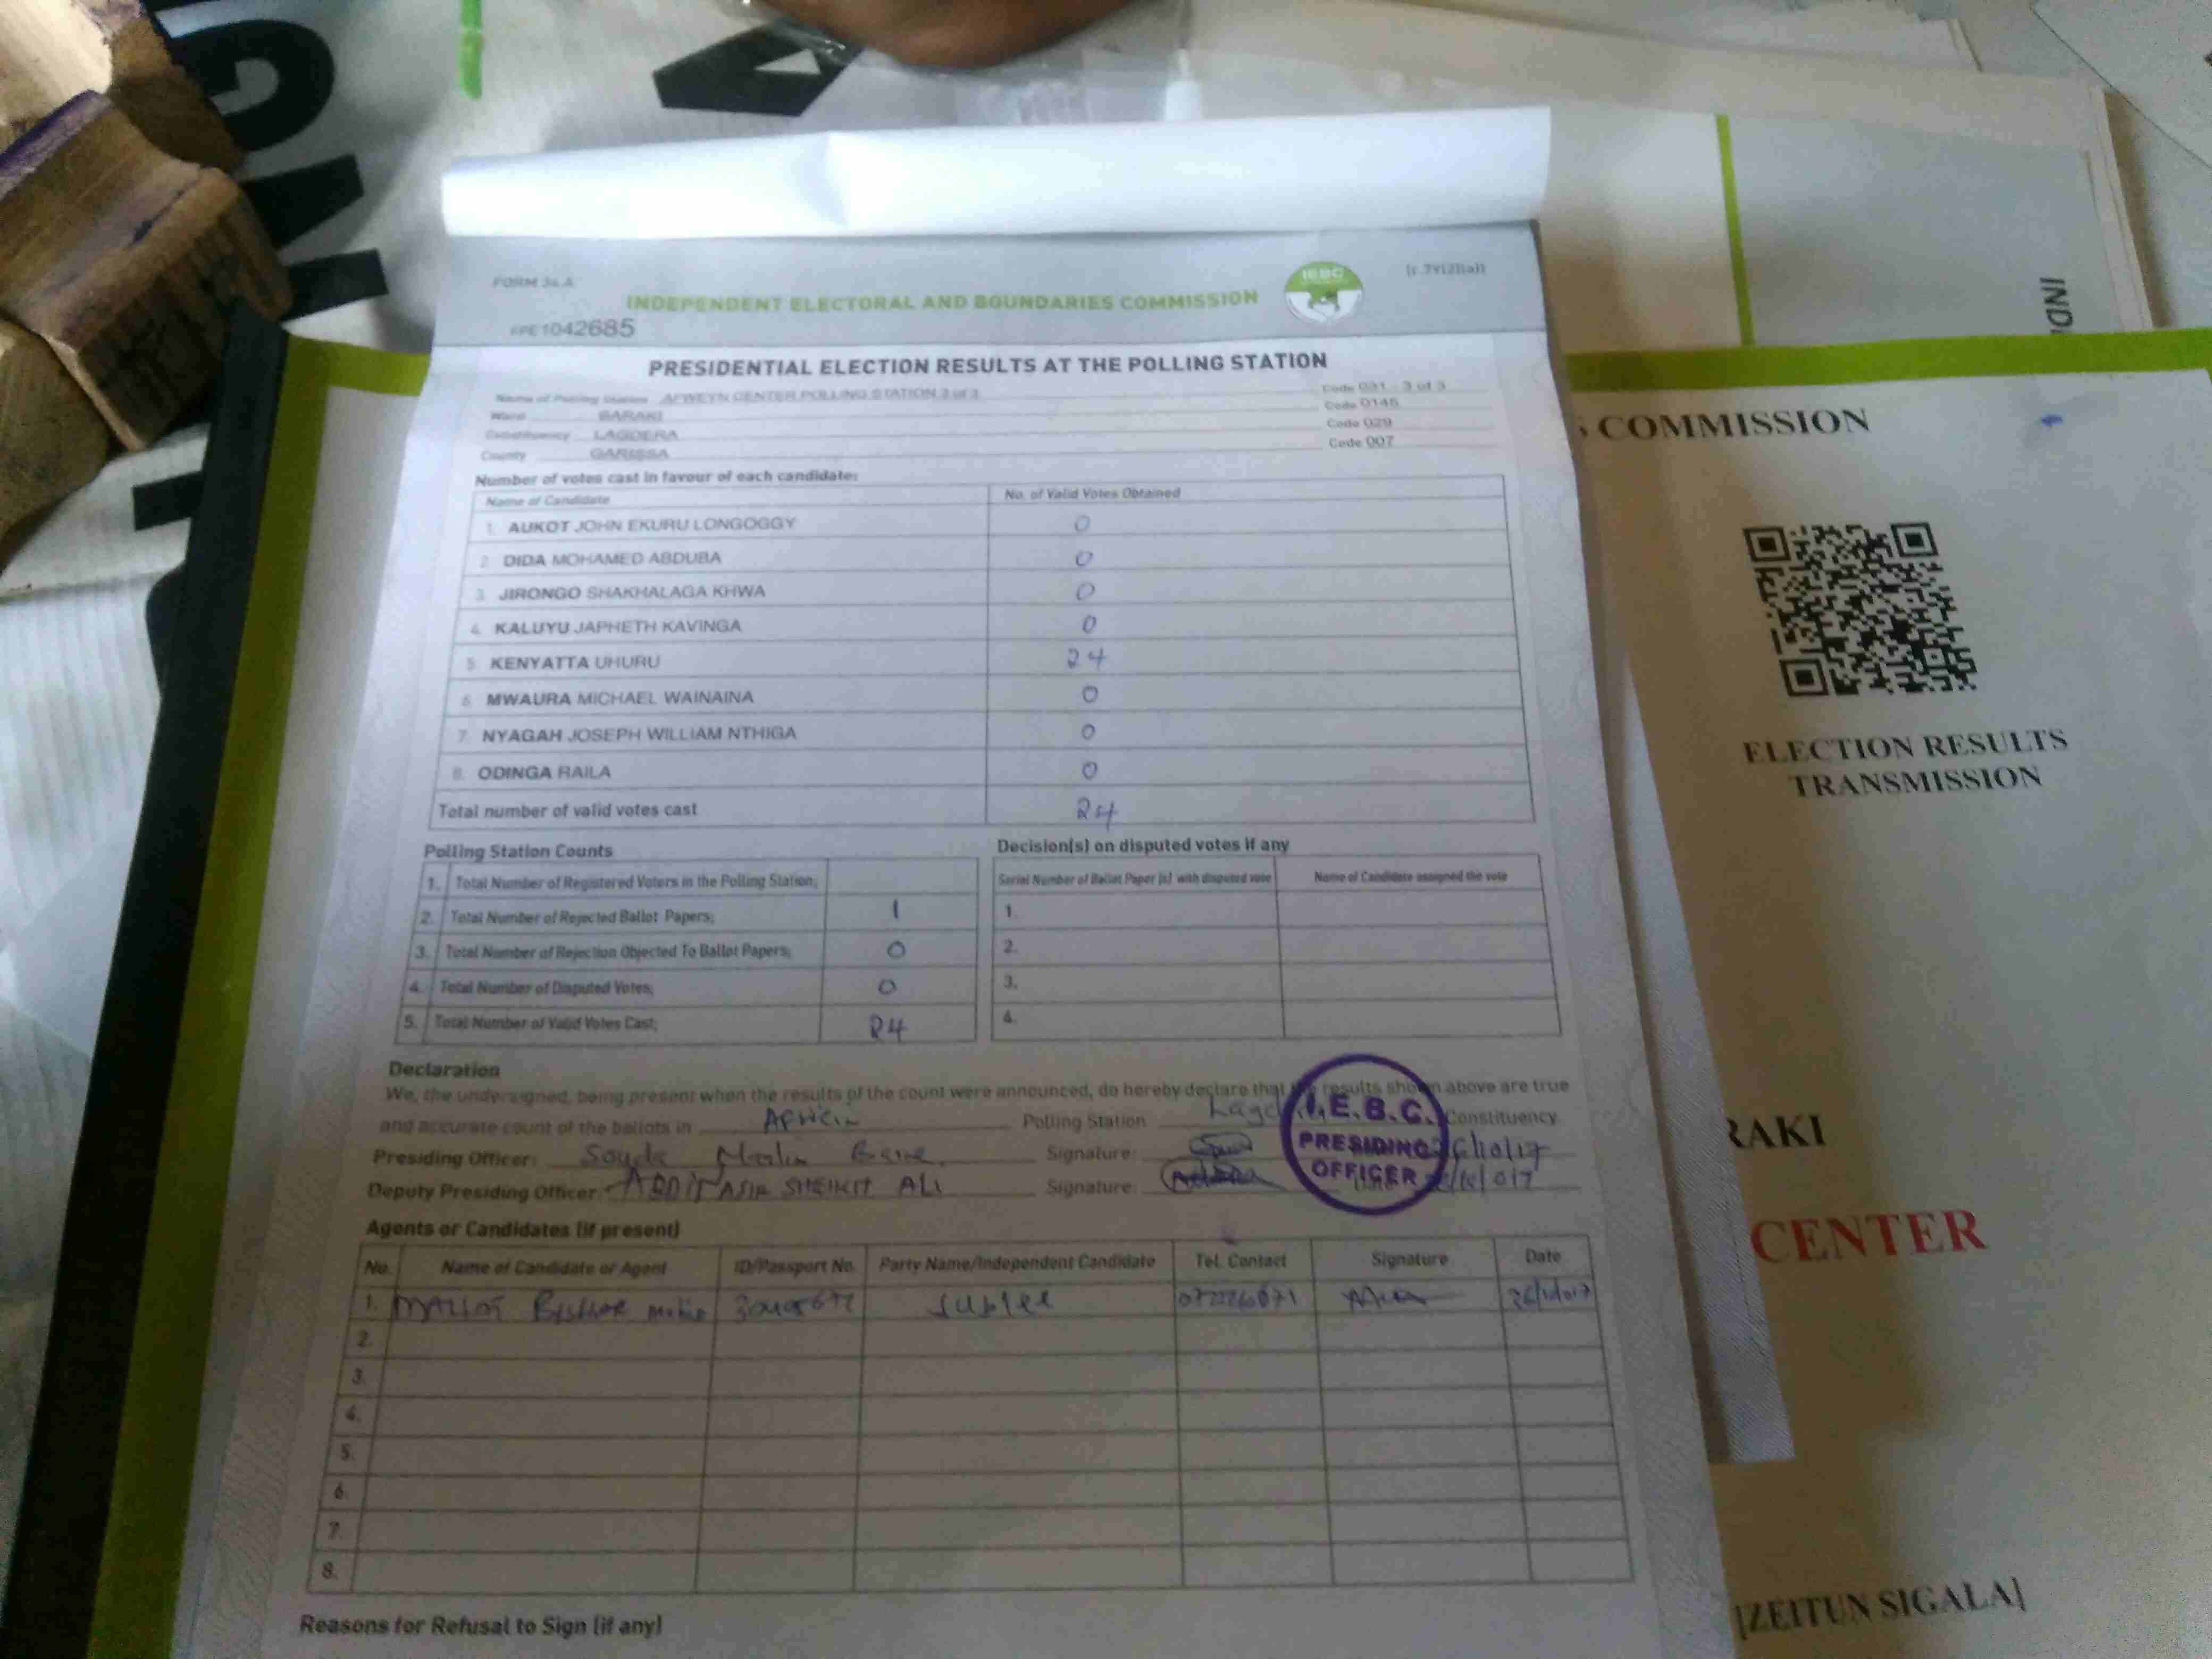 FORM 34 A
INDEPENDENT ELECTORAL AND BOUNDARIES COMMISSION
IEBC
1042685
PRESIDENTIAL ELECTION RESULTS AT THE POLLING STATION
Name of Polling Station AFWEYN CENTER POLLING STATION 3 of 3 Code 031 - 3 of 3
Ward BARAKI Code 0145
Constituency LAGDERA Code 029
County GARISSA Code 007
Number of votes cast in favour of each candidate:
Name of Candidate No. of Valid Votes Obtained
1. AUKOT JOHN EKURU LONGOGGY 0
2. DIDA MOHAMED ABDUBA 0
3. JIRONGO SHAKHALAGA KHWA 0
4. KALUYU JAPHETH KAVINGA 0
5. KENYATTA UHURU 24
6. MWAURA MICHAEL WAINAINA 0
7. NYAGAH JOSEPH WILLIAM NTHIGA 0
8. ODINGA RAILA 0
Total number of valid votes cast 24
Polling Station Counts
1. Total Number of Registered Voters in the Polling Station;
2. Total Number of Rejected Ballot Papers; 1
3. Total Number of Rejection Objected To Ballot Papers; 0
4. Total Number of Disputed Votes; 0
5. Total Number of Valid Votes Cast; 24
Decision(s) on disputed votes if any
Serial Number of Ballot Paper (s) with disputed vote Name of Candidate assigned the vote
1.
2.
3.
4.
Declaration
We, the undersigned, being present when the results of the count were announced, do hereby declare that the results shown above are true
and accurate count of the ballots in Polling Station Constituency
Presiding Officer: Signature: 26/10/17
Deputy Presiding Officer: SHEIKH ALI Signature:
I.E.B.C.
PRESIDING
OFFICER
Agents or Candidates (if present)
No. Name of Candidate or Agent ID/Passport No. Party Name/Independent Candidate Tel. Contact Signature Date
1.
2.
3.
4.
5.
6.
7.
8.
Reasons for Refusal to Sign (if any)
COMMISSION
ELECTION RESULTS
TRANSMISSION
RAKI
CENTER
[ZEITUN SIGALA]